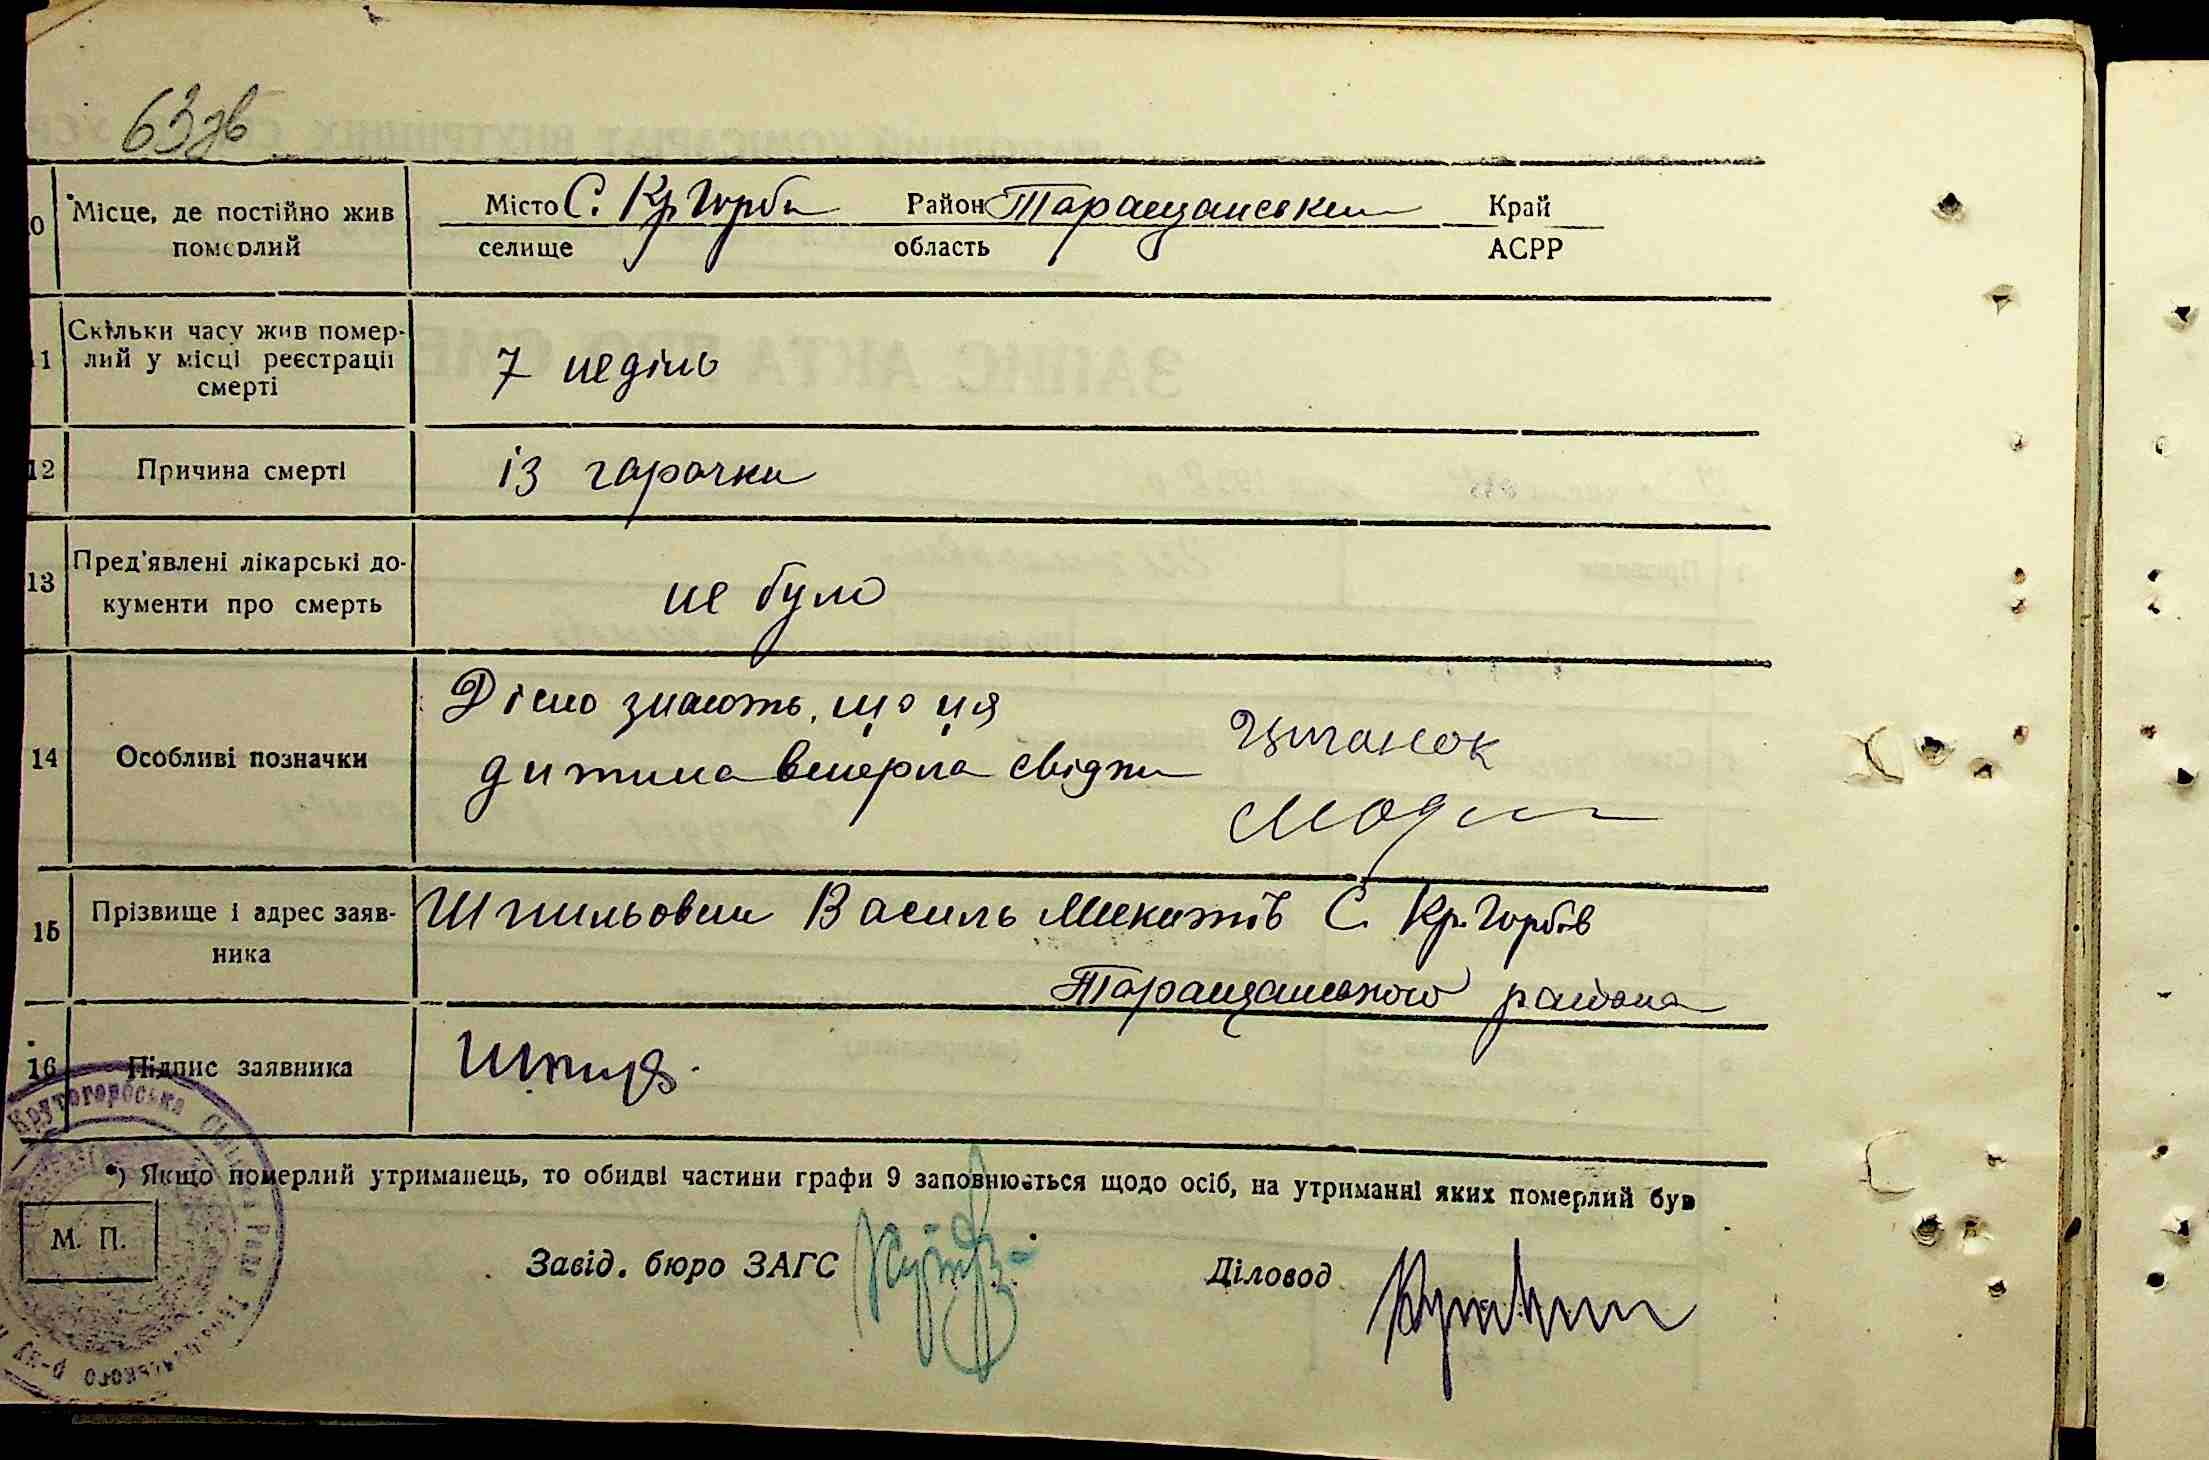 63зв
10 Місце, де постійно жив
померлий
Місто С. Кр Горби Район Таращанський Край
селище область АСРР
11 Скільки часу жив помер-
лий у місці реєстрації
смерті
7 неділь
12 Причина смерті
із горочки
13 Пред'явлені лікарські до-
кументи про смерть
не було
14 Особливі позначки
Дісно знають, що ця
дитина вмерла свідки
Циганок
15 Прізвище і адрес заяв-
ника
Шпильовий Василь Микитів С. Кр. Горбів
Таращанського района
16 Підпис заявника
*) Якщо померлий утриманець, то обидві частини графи 9 заповнюється щодо осіб, на утриманні яких померлий був
М. П.
Крутогорбська Сільська Рада Таращанського р-ну
Завід. бюро ЗАГС
Діловод